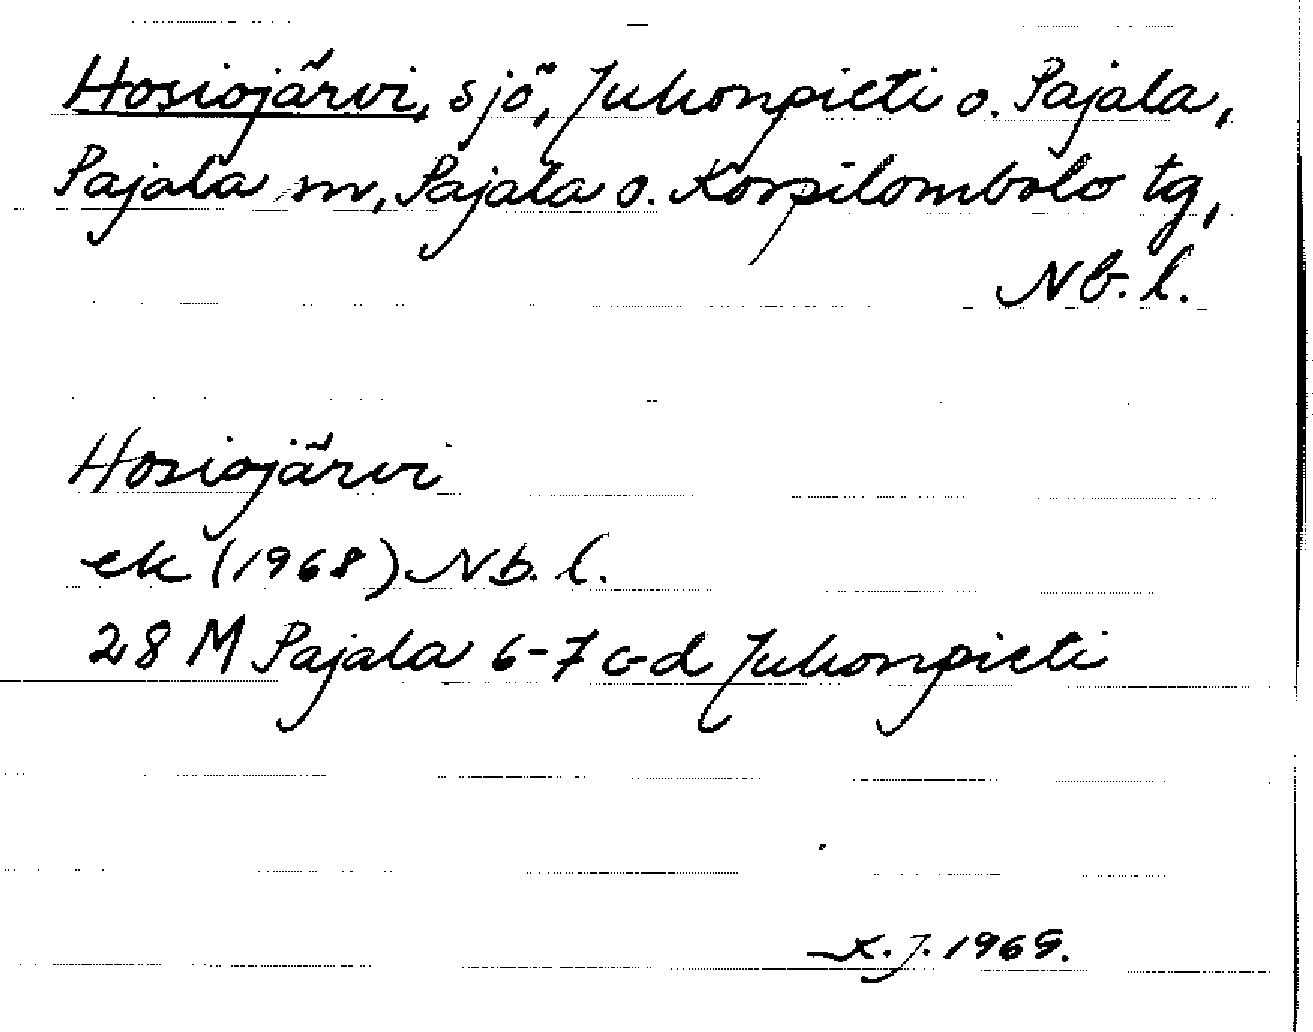 Hosiojärvi, sjö, Juhonpieti o. Pajala,
Pajala sn, Pajala o. Korpilombolo tg,
Nb. l.
Hosiojärvi
ek (1968) Nb. l.
28 M Pajala 6-7 c-d Juhonpieti
K. J. 1969.